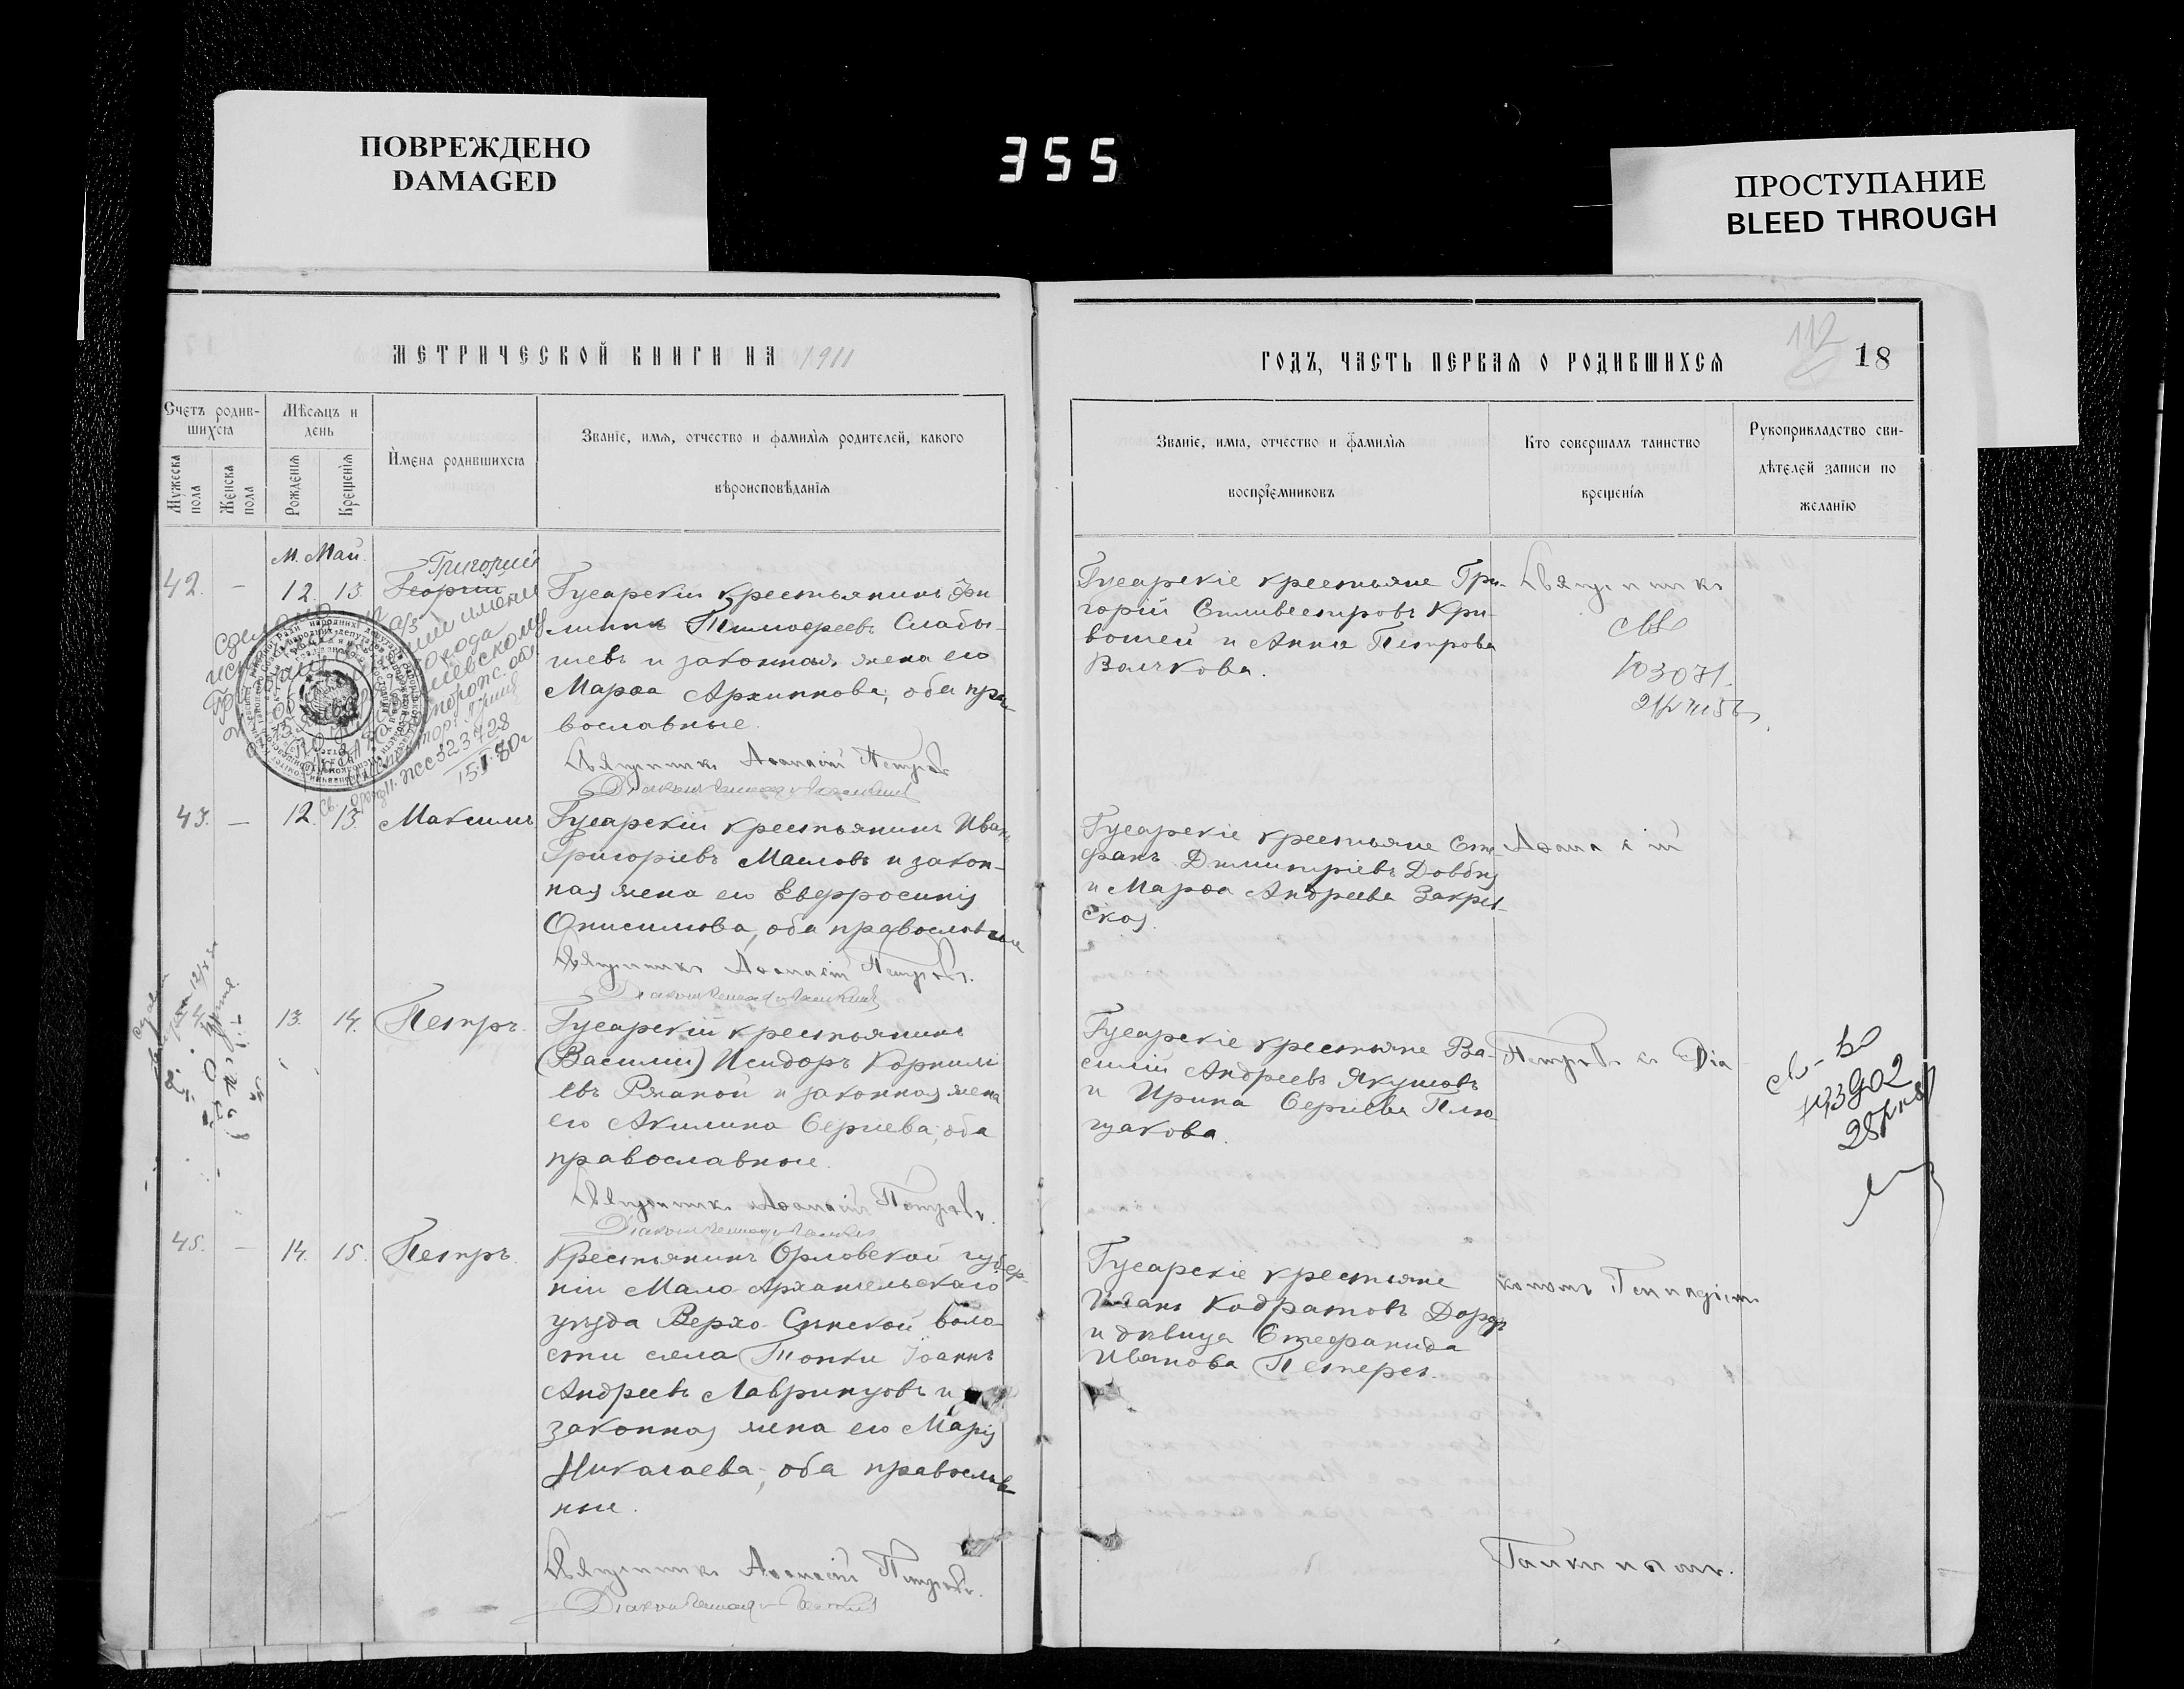 ПОВРЕЖДЕНО
DAMAGED
355
ПРОСТУПАНИЕ
BLEED THROUGH
МЕТРИЧЕСКОЙ КНИГИ НА 1911
ГОДЪ, ЧАСТЬ ПЕРВАЯ О РОДИВШИХСЯ
112
18
Счетъ родив-
шихся
Мужеска пола
Женска пола
Мѣсяцъ и
день
Рожденія
Крещенія
Имена родившихся
Званіе, имя, отчество и фамилія родителей, какого
вѣроисповѣданія
Званіе, имя, отчество и фамилія
воспріемниковъ
Кто совершалъ таинство
крещенія
Рукоприкладство сви-
дѣтелей записи по
желанію
М. Май.
42. — 12. 13. Георгий
Григорий
Гусарскій крестьянинъ Фи
липпъ Тимофеевъ Слабы-
шевъ и законная жена его
Марѳа Архиппова, оба пра-
вославные.
Священникъ Аѳанасій Петровъ
Гусарскіе крестьяне Гри-
горій Сильвестровъ Кри-
вошеи и Анна Петрова
Волчкова.
Священникъ
103071.
323728
15.I.80г
43. — 12. 13. Максимъ
Гусарскій крестьянинъ Иванъ
Григоріевъ Масловъ и закон-
ная жена его Евфросинія
Онисимова, оба православные
Священникъ Аѳанасій Петровъ.
Гусарскіе крестьяне Сте-
фанъ Димитріевъ Довбня
и Марѳа Андреева Закрев-
ская.
Аѳанасій
13. 14. Петръ.
Гусарскій крестьянинъ
(Василий) Исидоръ Корнилі
евъ Ржаной и законная жена
его Акилина Сергиева, оба
православные.
Священникъ Аѳанасій Петровъ.
Гусарскіе крестьяне Ва-
силій Андреевъ Якушовъ
и Ирина Сергіева Плю-
гчакова.
Петровъ съ Діа
45. — 14. 15. Петръ.
Крестьянинъ Орловской губер-
ніи Мало Архангельскаго
уѣзда Верхо-Синской воло-
сти села Топки Іоаннъ
Андреевъ Лавринцовъ и
законная жена его Марія
Николаева, оба православ-
ные.
Священникъ Аѳанасій Петровъ.
Гусарскіе крестьяне
Иванъ Кодратовъ
и дѣвица Стефанида
Иванова
кономъ Геннадіемъ
Галкинымъ.